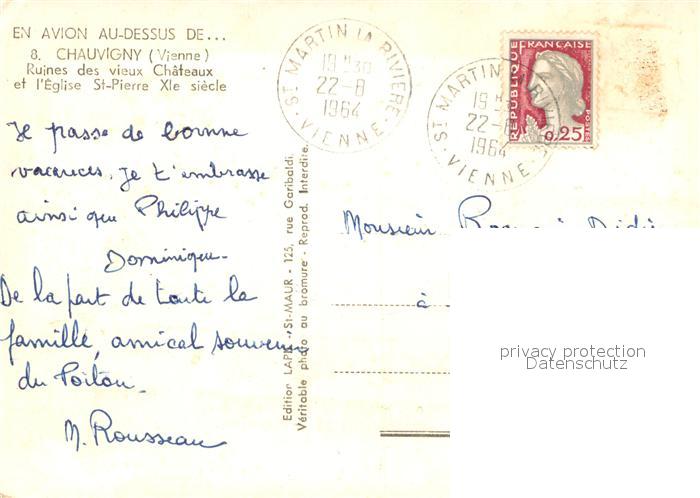 EN AVION AU-DESSUS DE...
8. CHAUVIGNY (Vienne)
Ruines des vieux Châteaux
et l'Église St-Pierre XIe siècle
Je passe de bonne
vacances. Je t'embrasse
ainsi que Philippe
Dominique
De la part de toute la
famille, amical souvenir
du Poitou.
M. Rousseau
Edition LAPIE - St-MAUR - 125, rue Garibaldi.
Véritable photo au bromure - Reprod. Interdite.
ST MARTIN LA RIVIERE
19H30
22-8
1964
VIENNE
ST MARTIN LA RIVIERE
19H
22-8
1964
VIENNE
REPUBLIQUE FRANÇAISE
0,25
POSTES
Monsieur
à
privacy protection
Datenschutz